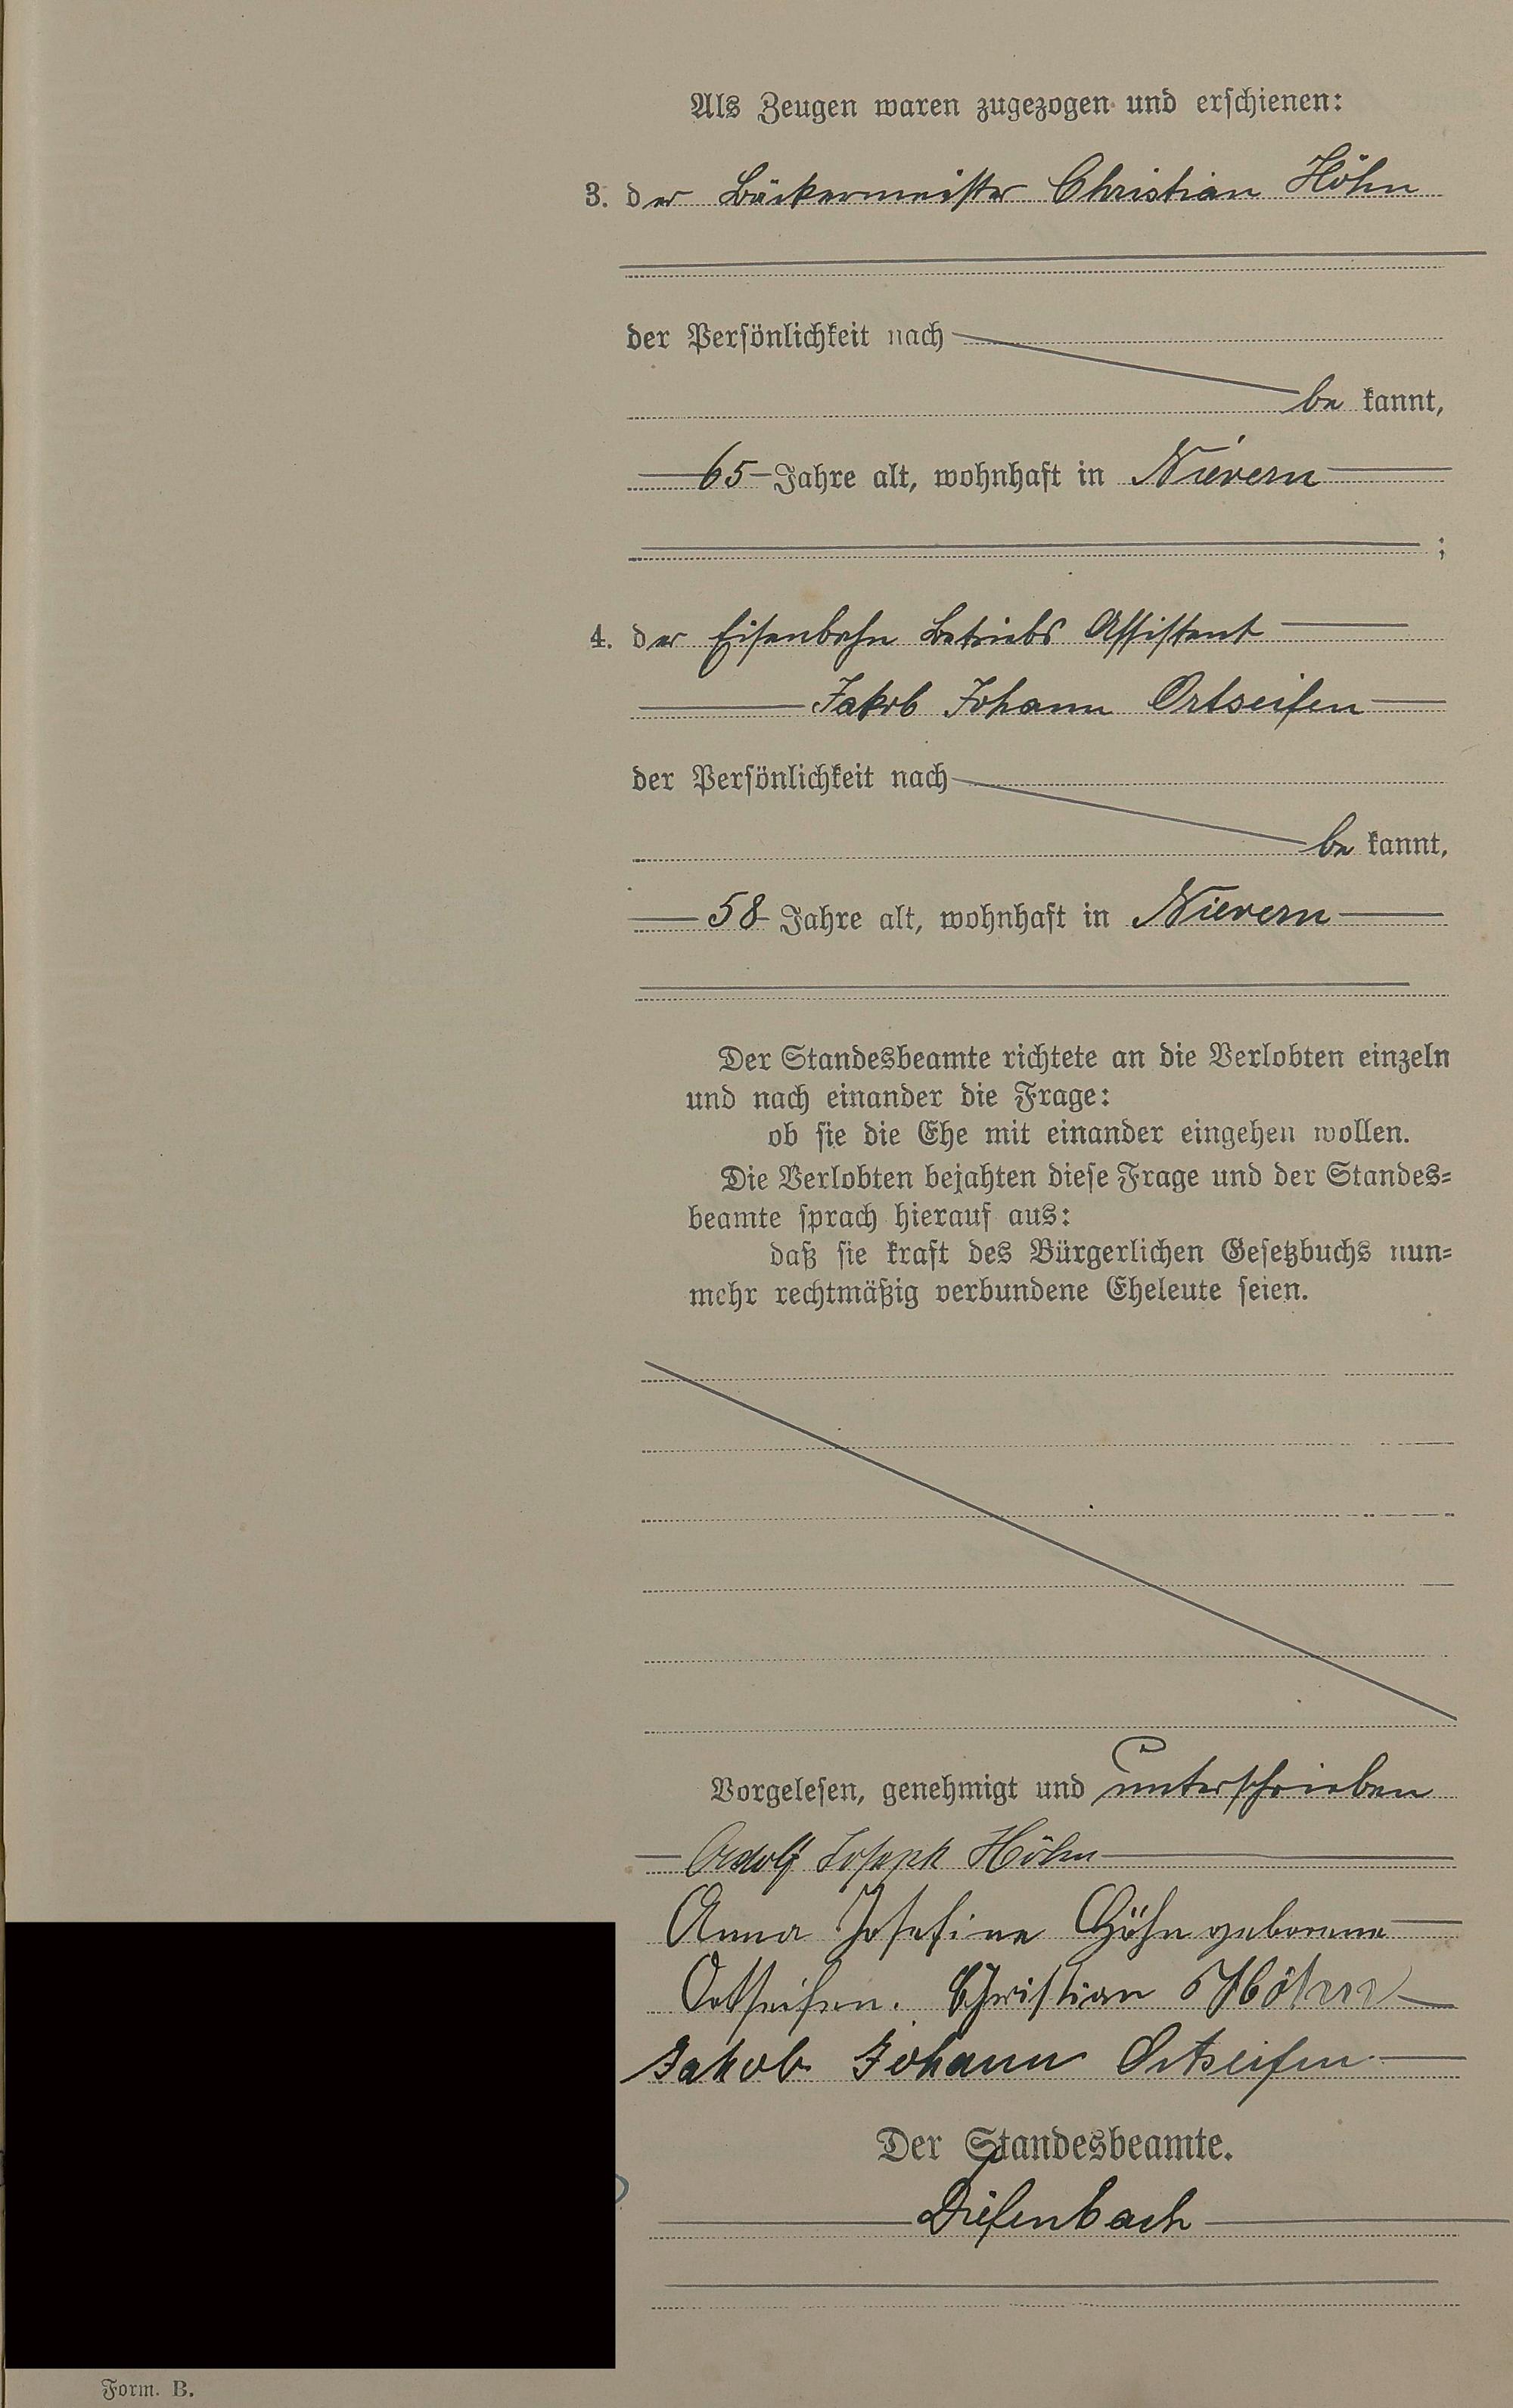 Als Zeugen waren zugezogen und erschienen:
3. der Bäckermeister Christian Höhn
der Persönlichkeit nach
be kannt,
65 Jahre alt, wohnhaft in Nievern
;
4. der Eisenbahn Betriebs Assistent
Jakob Johann Ortseifen
der Persönlichkeit nach
be kannt,
58 Jahre alt, wohnhaft in Nievern
Der Standesbeamte richtete an die Verlobten einzeln
und nach einander die Frage:
ob sie die Ehe mit einander eingehen wollen.
Die Verlobten bejahten diese Frage und der Standes=
beamte sprach hierauf aus:
daß sie kraft des Bürgerlichen Gesetzbuchs nun=
mehr rechtmäßig verbundene Eheleute seien.
Vorgelesen, genehmigt und unterschrieben
Adolf Joseph Höhn
Anna Josefine Höhn geborene
Ortseifen. Christian Höhn
Jakob Johann Ortseifen
Der Standesbeamte.
Diefenbach
Form. B.